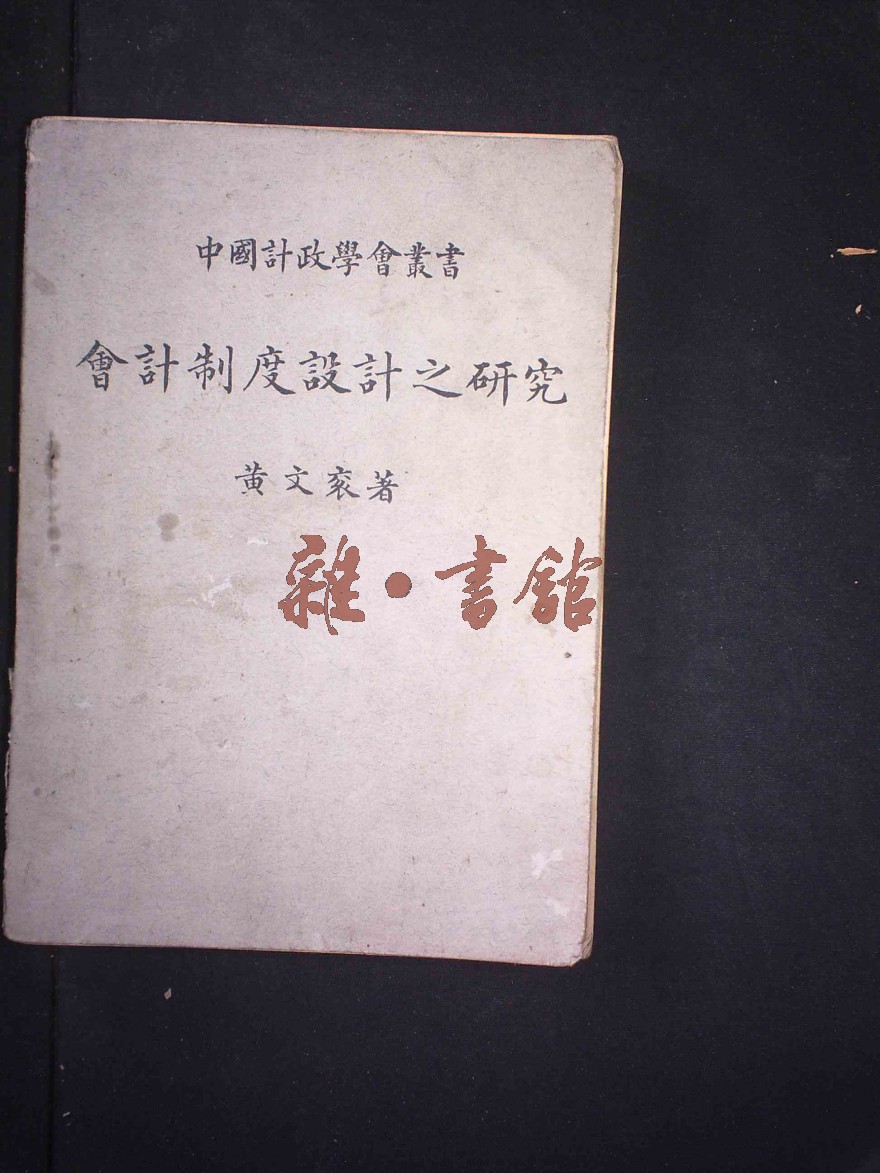 中國計政學會叢書
會計制度設計之研究
黃文袞著
雜·書館